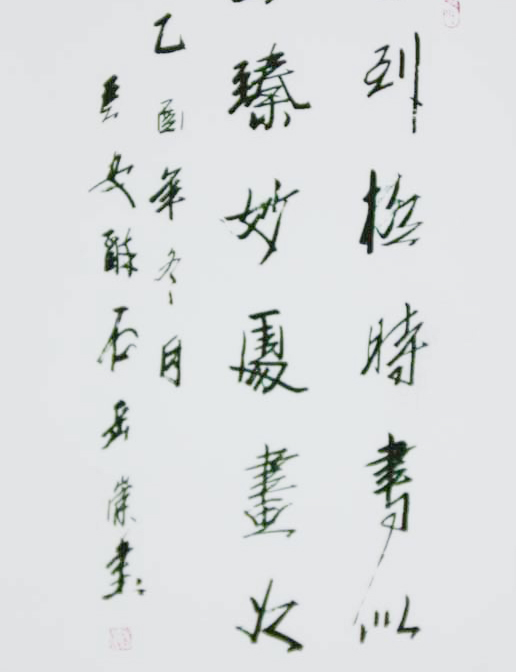 到極時書似
臻妙處畫如
乙酉年冬月
長安醉石岳書